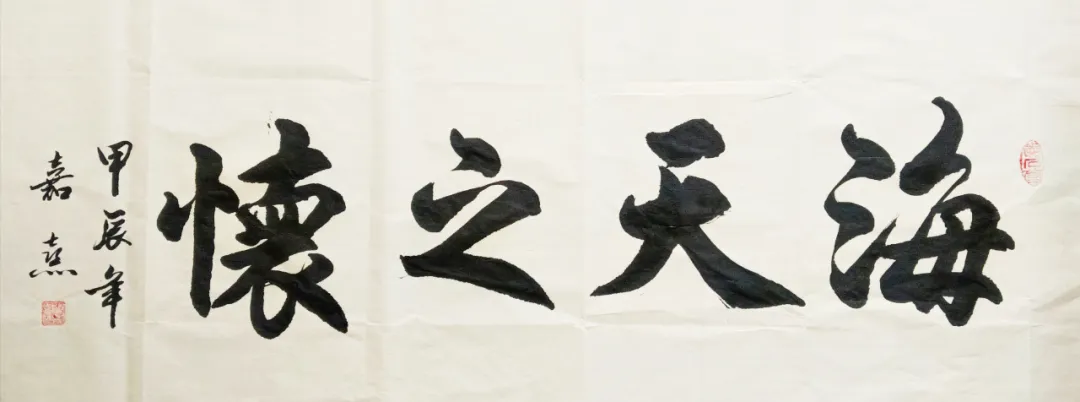 海天之懷
甲辰年
嘉